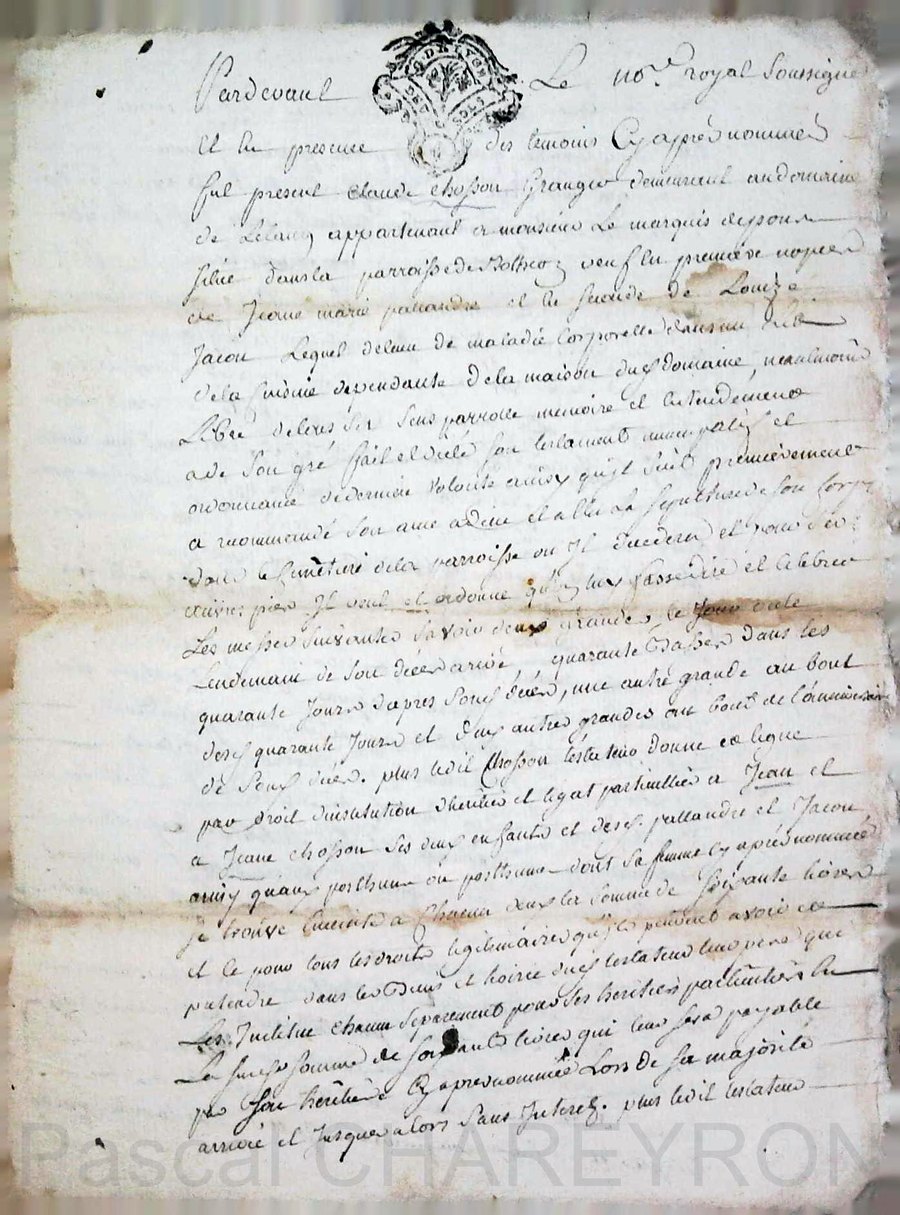 Pardevant Le no.re royal Soussigné
GN DE LYON
DEC SOLS
Et En presence des temoins Cy après nommés
fut present Claude Chosson Granger demeurant au domaine
de appartenant a monsieur Le marquis de
dans la parroisse de veuf En première nopces
de Jeane marie pallandre et En seconde de Louize
Jacou Lequel detenu de maladie Corporelle dans un lit
de la Cuisine dependante de la maison dud domaine, neanlmoins
Libre de ses Sens parrolle memoire et Entendement
a de Son gré fait et dicté Son testament nuncupatif et
ordonnance de derniere Volonté ainsy qu'il Suit premièrement
a recommandé Son ame a dieu et a Elu La Sepulture de Son Corps
dans le Cimetiere de la parroisse ou Il decedera et pour Ses
œuvres pies Il veut et ordonne qu'il luy Soit dit et Celebré
Les messes Suivantes Savoir deux grandes le Jour et le
Lendemain de Son décès arrivé, quarante basses dans les
quarante Jours d'apres Sond décès, une autre grande au bout
desd quarante Jours et deux autres grandes au bout de l'anniversaire
de Sond décès. plus ledit Chosson testateur donne et legue
par droit d'institution d'heritier et legat particullier a Jean et
a Jeane Chosson Ses deux enfants et desd. pallandre et Jacou
ainsy qu'aux posthume ou posthume dont Sa femme Cy après nommée
Se trouve Enceinte a Chacun deux La Somme de Soixante livres
et ce pour tous les droits legitimaires qu'ils peuvent avoir et
pretendre dans les Biens et hoirie dud testateur leur pere qui
Les Institue Chacun Separement pour Ses heritiers particuliers En
La Susd Somme de Soixante livres qui leur Sera payable
par Son heritiere Cy apres nommée Lors de Sa majorité
arrivée et Jusque alors Sans Interets. plus ledit testateur
Pascal CHAREYRON